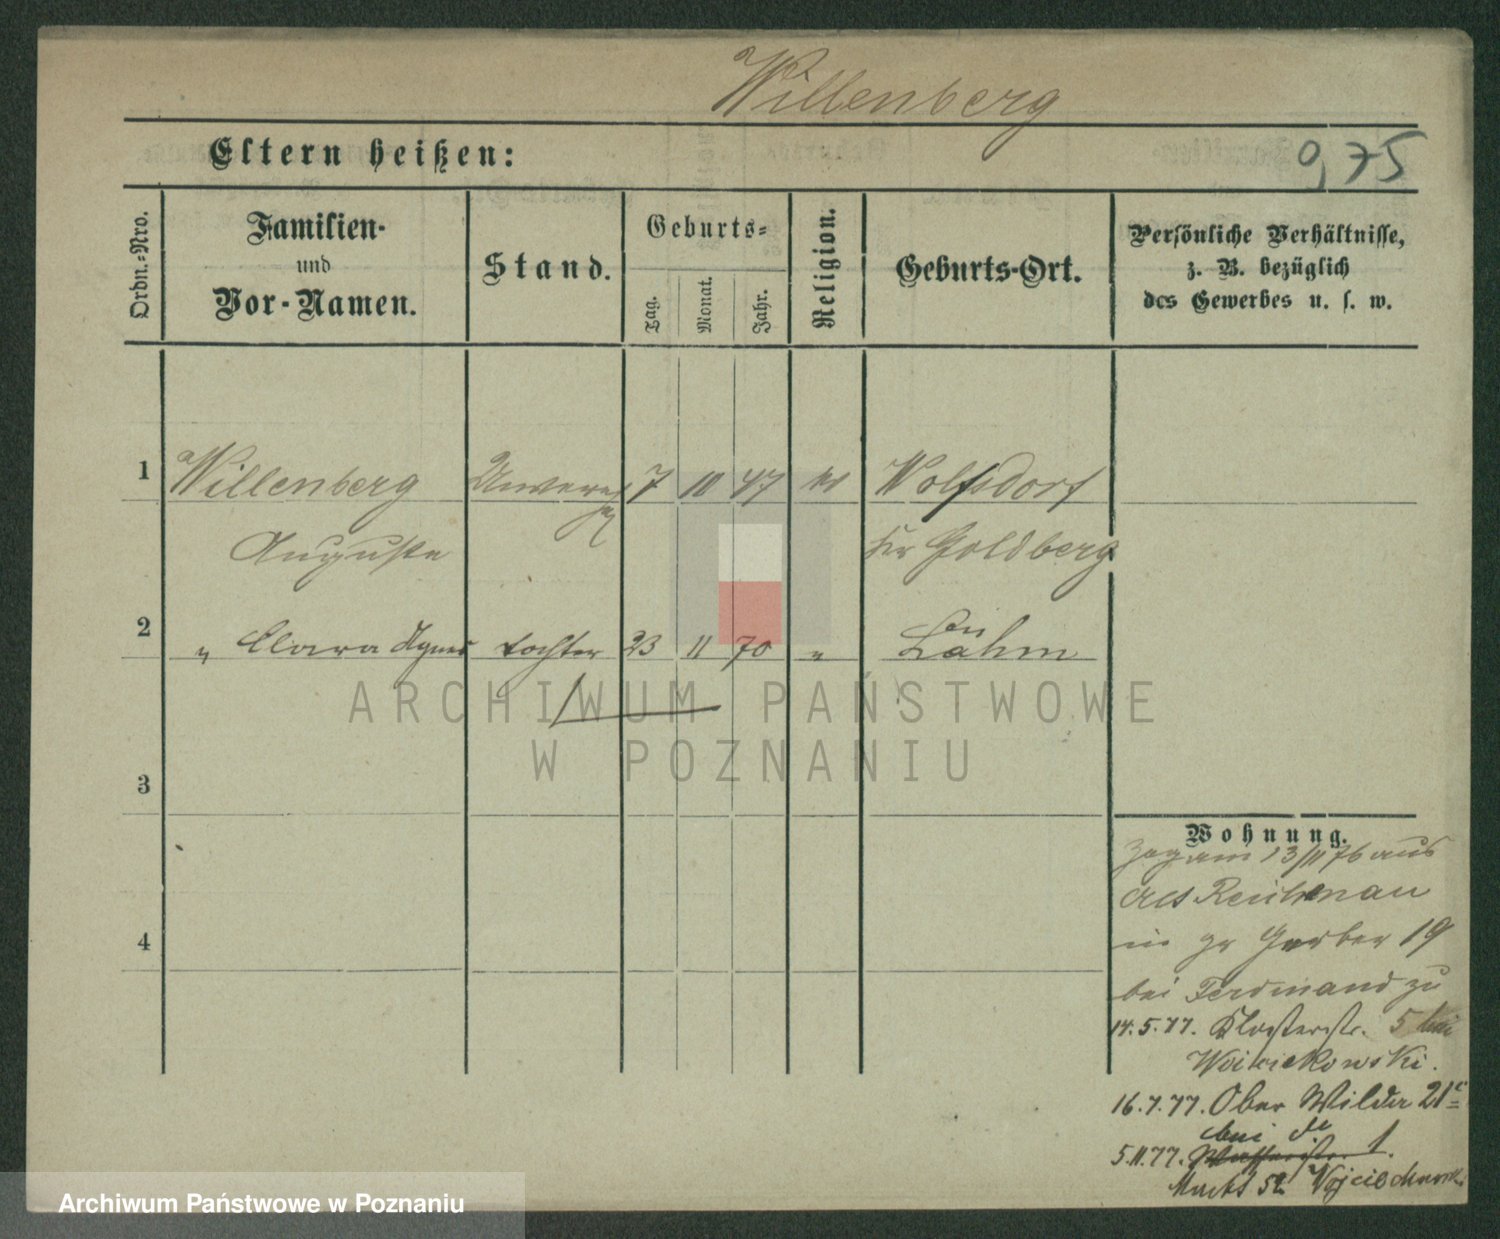 Willenberg
Eltern heißen:
0,75
Ordn.-Nro.
Familien-
und
Vor-Namen.
Stand.
Geburts-
Tag.
Monat.
Jahr.
Religion.
Geburts-Ort.
Persönliche Verhältnisse,
z. B. bezüglich
des Gewerbes u. s. w.
1
Willenberg
7 10 47
Wolfsdorf
Auguste
Goldberg
2
" Clara Agnes tochter 23 11 70 "
Lähn
ARCHIWUM PAŃSTWOWE
W POZNANIU
3
Wohnung.
zog am 13/11 76 aus
in gr Gerber 19
4
bei Ferdinand zu
14.5.77. Klosterstr. 5 bei
16.7.77. Ober Wilda 21c
bei
5.11.77. 1.
Markt 52
Archiwum Państwowe w Poznaniu